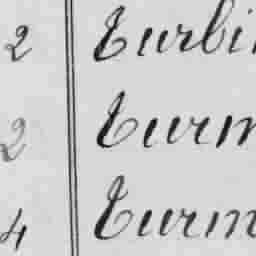 2 Turbi
2 Turm
4 Turm